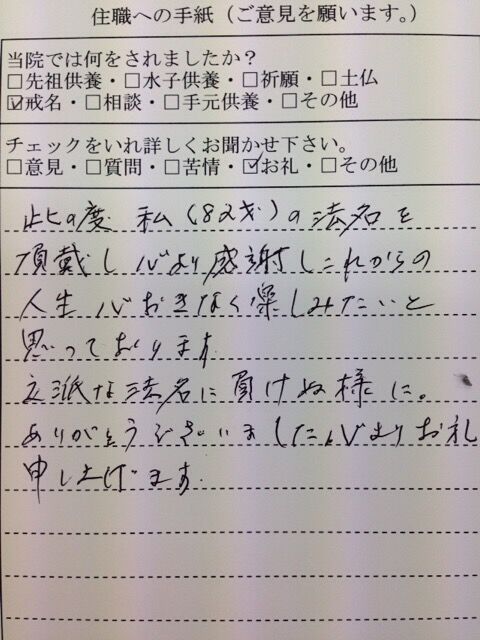 住職への手紙（ご意見を願います。）
当院では何をされましたか？
□先祖供養・□水子供養・□祈願・□土仏
☑戒名・□相談・□手元供養・□その他
チェックをいれ詳しくお聞かせ下さい。
□意見・□質問・□苦情・☑お礼・□その他
此の度 私（82才）の法名を
頂戴し心より感謝しこれからの
人生心おきなく楽しみたいと
思っております
立派な法名に負けぬ様に。
ありがとうございました心よりお礼
申し上げます.